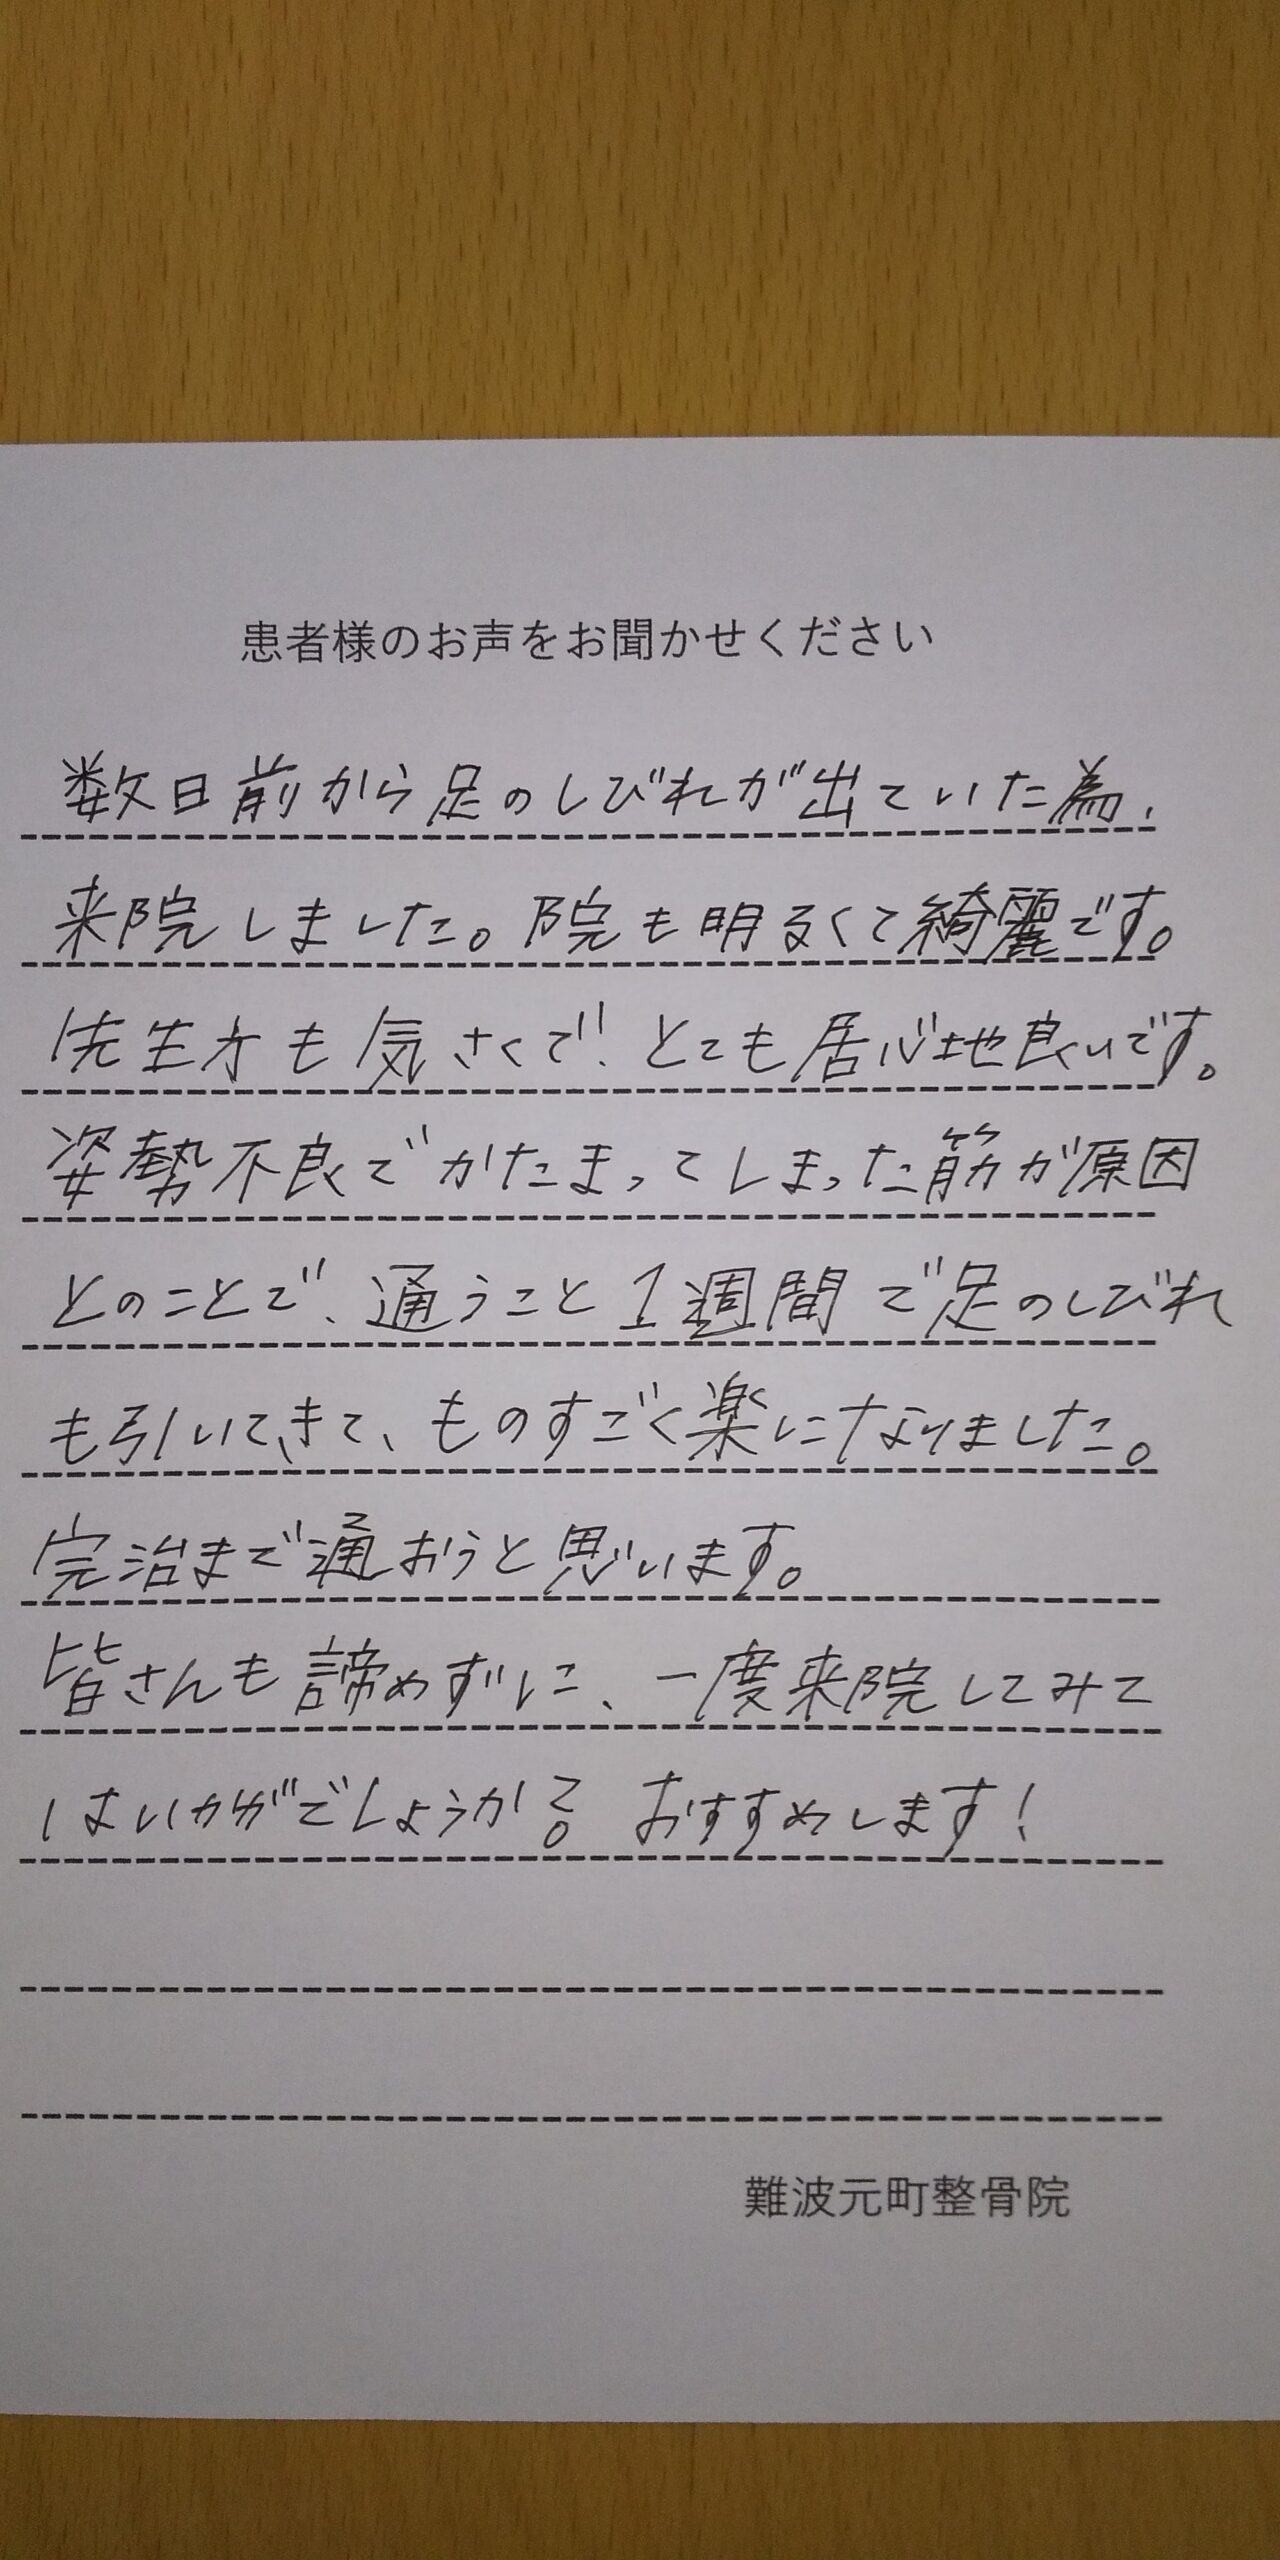 患者様のお声をお聞かせください
数日前から足のしびれが出ていた為、
来院しました。院も明るくて綺麗です。
先生方も気さくで、とても居心地良いです。
姿勢不良でかたまってしまった筋が原因
とのことで、通うこと1週間で足のしびれ
も引いてきて、ものすごく楽になりました。
完治まで通おうと思います。
皆さんも諦めずに、一度来院してみて
はいかがでしょうか？おすすめします！
難波元町整骨院